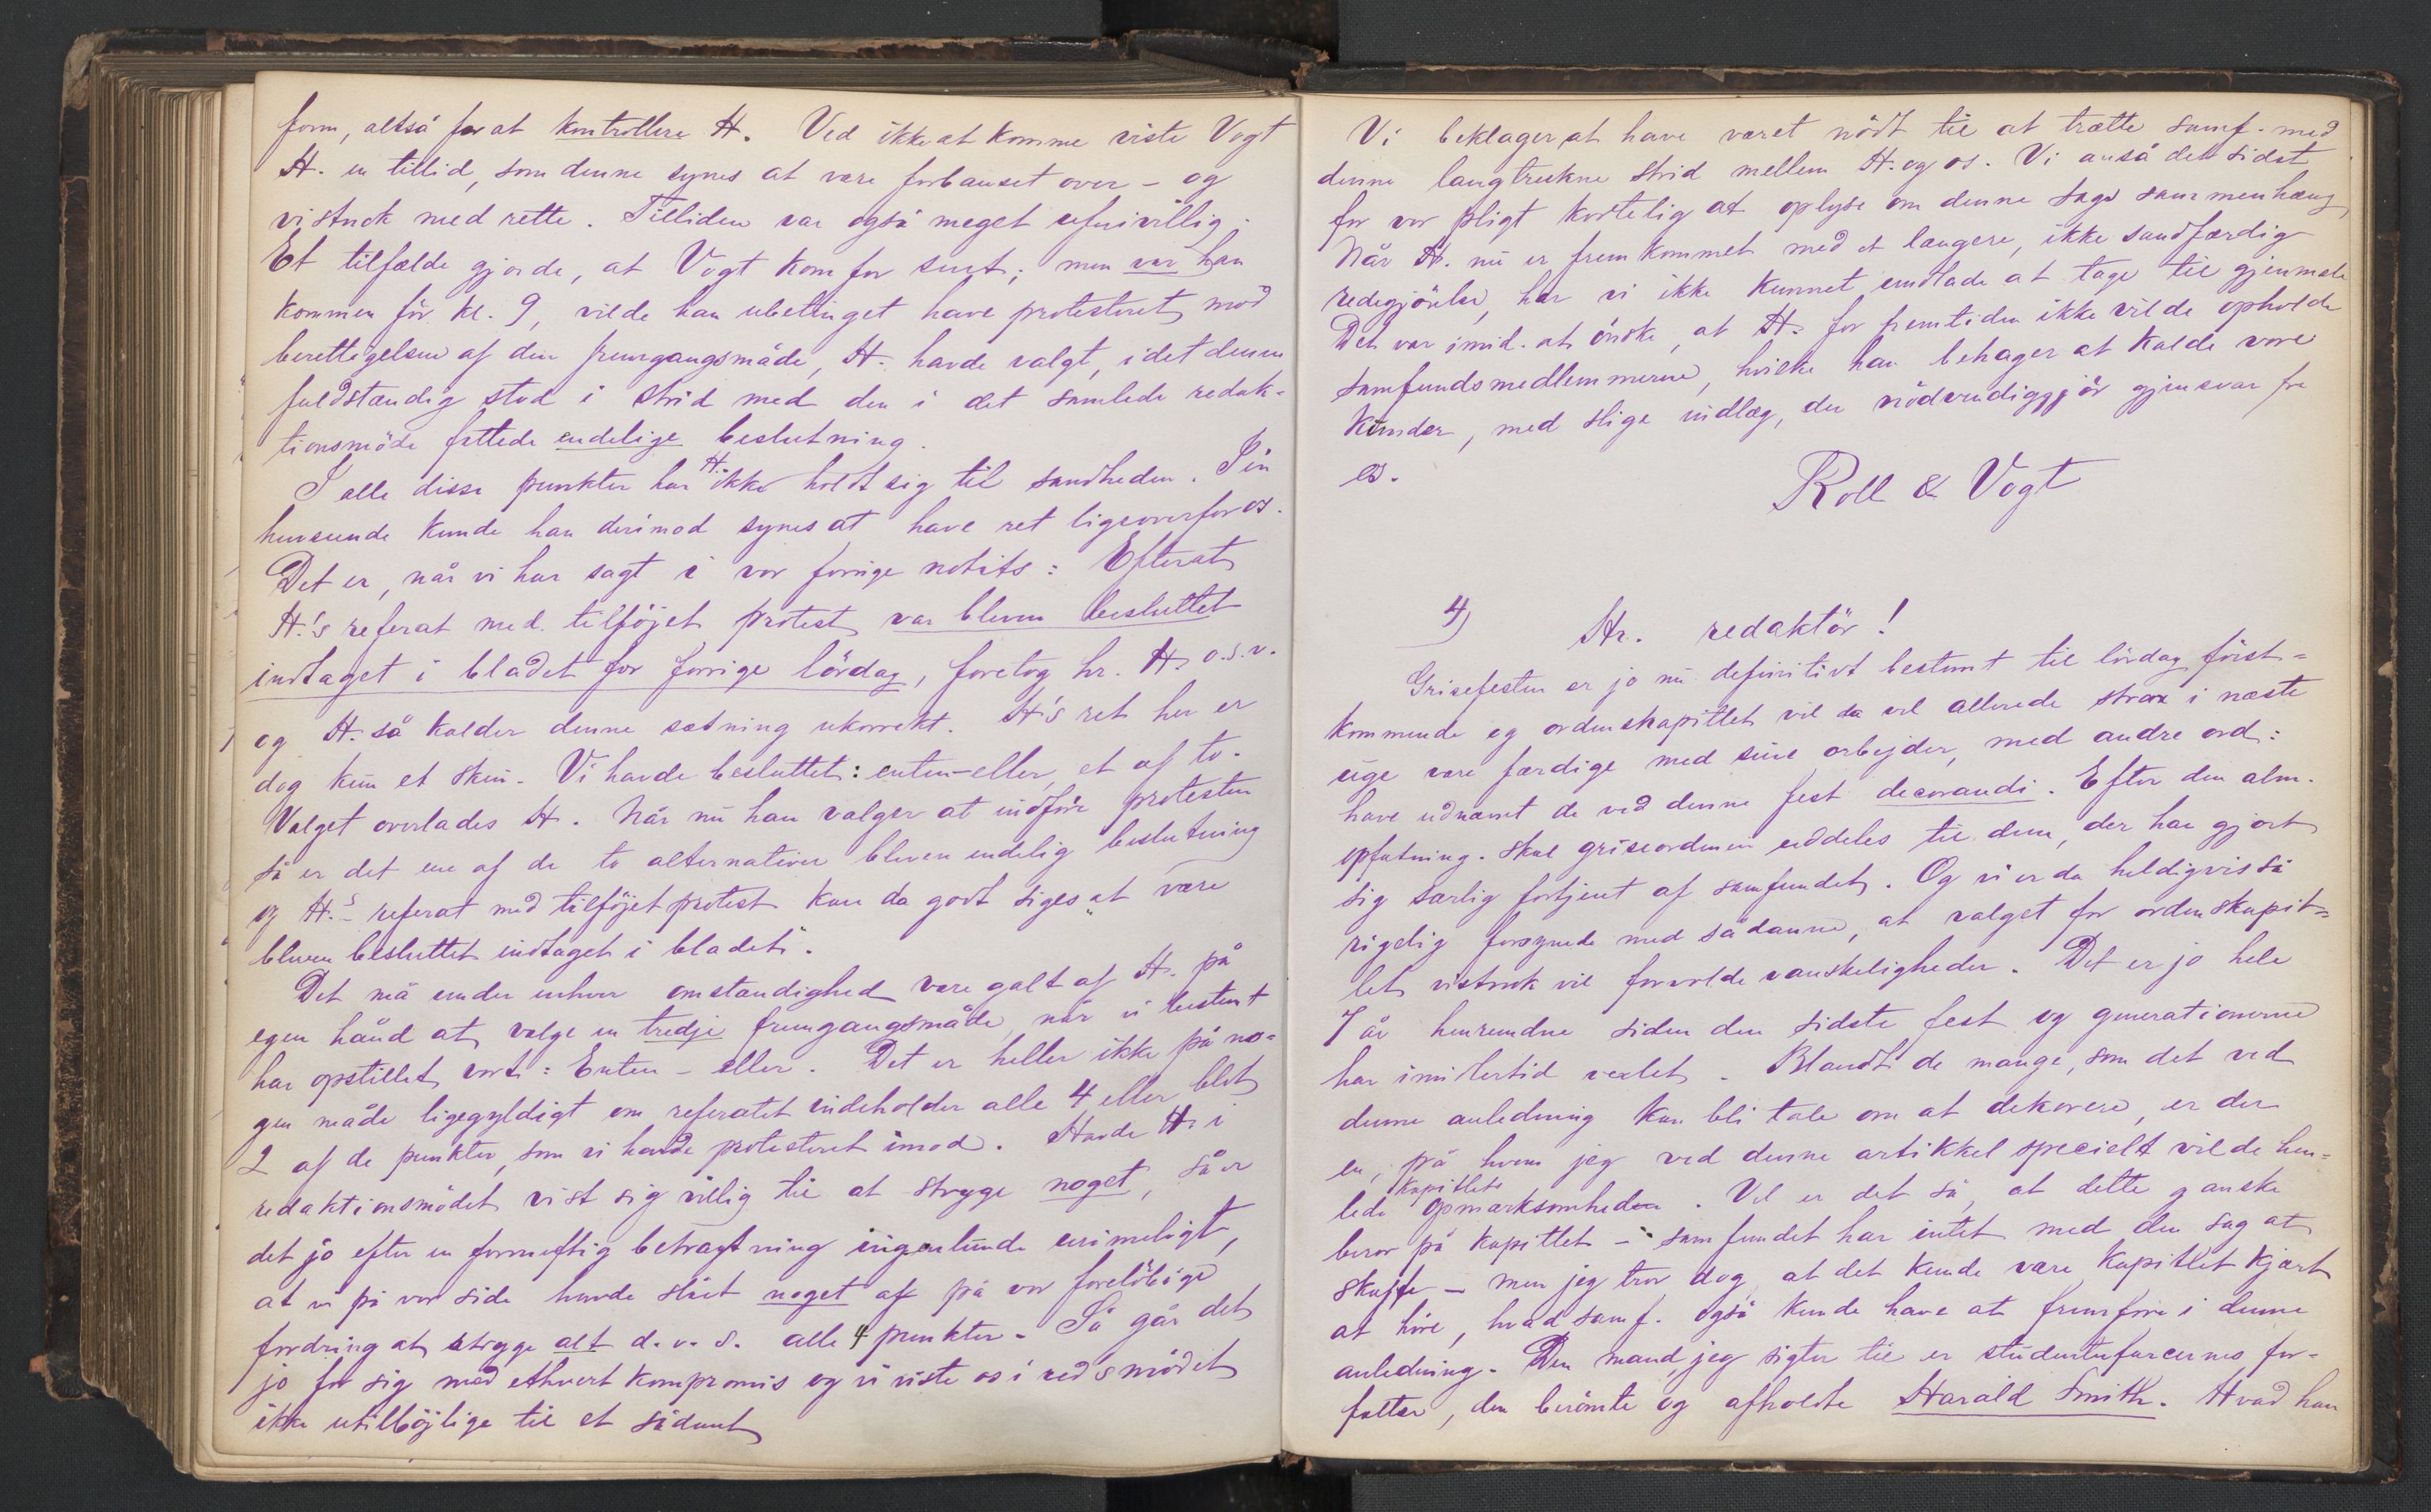 form, altså for at kontrollere H. Ved ikke at komme viste Vogt
H. en tillid, som denne synes at være forbauset over – og
vistnok med rette. Tilliden var også meget ufrivillig.
Et tilfælde gjorde, at Vogt kom for sent; men var han
kommen før kl. 9, vilde han ubetinget have protesteret mod
berettigelsen af den fremgangsmåde, H. havde valgt, idet denne
fuldstændig stod i strid med den i det samlede redak-
tionsmöde fattede endelige beslutning.
I alle disse punkter har H. ikke holdt sig til sandheden. I én
henseende kunde han derimod synes at have ret ligeoverfor os.
Det er, når vi har sagt i vor forrige notits: Efterat
H.'s referat med tilföjet protest var bleven besluttet
indtaget i bladet for forrige lördag, foretog hr. H. o.s.v.
og H. så kalder denne sætning ukorrekt. H's ret her er
dog kun et skin. Vi havde besluttet: enten–eller, et af to.
Valget overlades H. Når nu han vælger at indföre protesten
så er det ene af de to alternativer bleven endelig beslutning
og H.'s referat med tilföjet protest kan da godt siges at "være
bleven besluttet indtaget i bladet".
Det må under enhver omstændighed være galt af H. på
egen hånd at vælge en tredje fremgangsmåde, når vi bestemt
har opstillet vort: Enten – eller. Det er heller ikke på no-
gen måde ligegyldigt om referatet indeholder alle 4 eller blot
2 af de punkter, som vi havde protesteret imod. Havde H. i
redaktionsmödet vist sig villig til at stryge noget, så er
det jo efter en fornuftig betragtning ingenlunde urimeligt,
at vi på vor side havde slået noget af på vor forelöbige
fordring at stryge alt d.v.s. alle 4 punkter. Så går det
jo for sig med ethvert kompromis og vi viste os i red's mödet
ikke utilböjlige til et sådant
Vi beklager at have været nödt til at trætte samf. med
denne langtrukne strid mellem H. og os. Vi anså det sidst
for vor pligt kortelig at oplyse om denne sags sammenhæng,
Når H. nu er fremkommet med et længere, ikke sandfærdig
redegjörelse, har vi ikke kunnet undlade at tage til gjenmæle
Det var imid. at önske, at H. for fremtiden ikke vilde opholde
samfundsmedlemmerne, hvilke han behager at kalde vore
kunder, med slige indlæg, der nödvendiggjör gjensvar fra
os.
Roll & Vogt
4)
Hr. redaktör!
Grisefesten er jo nu definitivt bestemt til lördag först-
kommende og ordenskapitlet vil da vel allerede strax i næste
uge være færdige med sine arbejder, med andre ord:
have udnævnt de ved denne fest decorandi. Efter den alm.
opfatning. skal griseordenen uddeles til dem, der har gjort
sig særlig fortjent af samfundet. Og vi er da heldigvis så
rigelig forsynede med sådanne, at valget for ordenskapit-
let vistnok vil forvolde vanskeligheder. Det er jo hele
7 år henrundne siden den sidste fest og generationerne
har imidlertid vexlet. Blandt de mange, som det ved
denne anledning kan bli tale om at dekorere, er der
en, på hvem jeg ved denne artikkel specielt vilde hen-
lede kapitlets opmærksomhed. Vel er det så, at dette ganske
beror på kapitlet – samfundet har intet med den sag at
skaffe – men jeg tror dog, at det kunde være kapitlet kjært
at höre, hvad samf. også kunde have at fremföre i denne
anledning. Den mand, jeg sigter til er studenterfarcernes for-
fatter, den berömte og afholdte Harald Smith. Hvad han